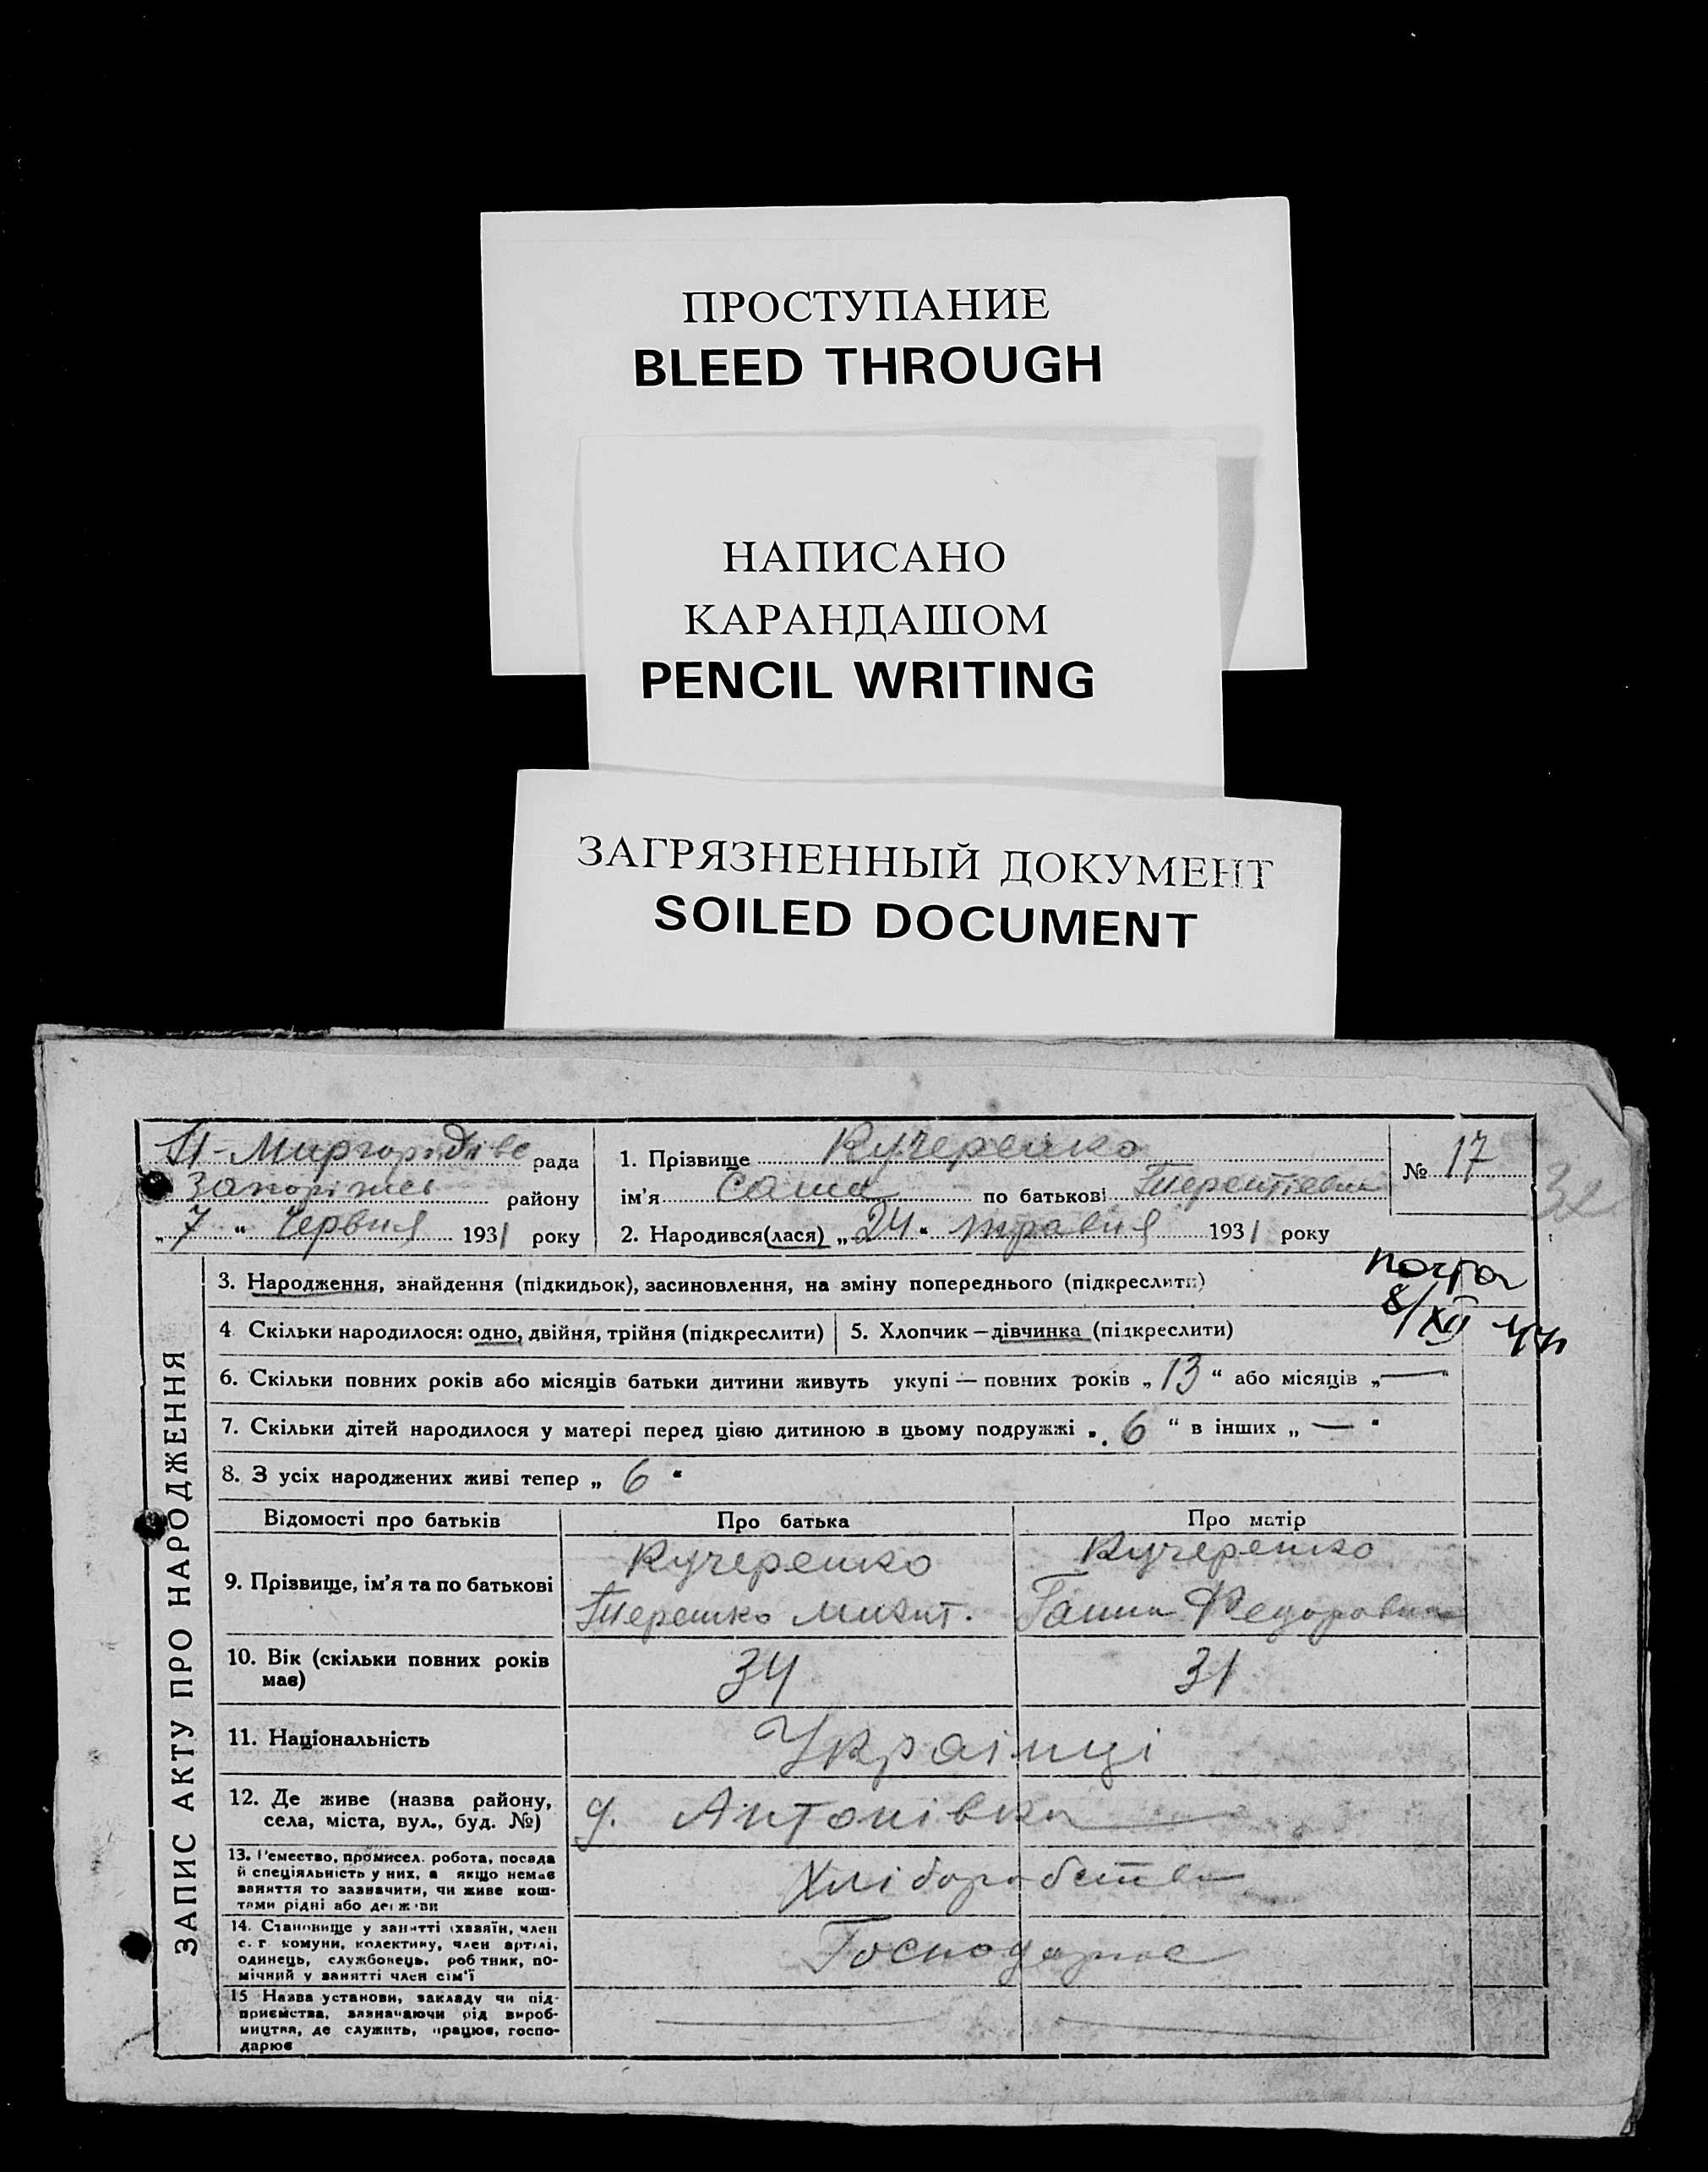 ПРОСТУПАНИЕ
BLEED THROUGH
НАПИСАНО
КАРАНДАШОМ
PENCIL WRITING
ЗАГРЯЗНЕННЫЙ ДОКУМЕНТ
SOILED DOCUMENT
рада
району
„7“ Червня 1931 року
1. Прізвище Кучеренко
ім'я Саша по батькові Терентіевна
2. Народився(лася) „24“ травня 1931 року
№ 17
32
8/XII
ЗАПИС АКТУ ПРО НАРОДЖЕННЯ
3. Народження, знайдення (підкидьок), засиновлення, на зміну попереднього (підкреслити)
4 Скільки народилося: одно, двійня, трійня (підкреслити)
5. Хлопчик — дівчинка (підкреслити)
6. Скільки повних років або місяців батьки дитини живуть укупі — повних років „13“ або місяців „—“
7. Скільки дітей народилося у матері перед цією дитиною в цьому подружжі „6“ в інших „—“
8. З усіх народжених живі тепер „6“
Відомості про батьків
Про батька
Про матір
9. Прізвище, ім'я та по батькові
Кучеренко
Терешко Микит.
Кучеренко
Ганна Федоровна
10. Вік (скільки повних років
має)
34
31
11. Національність
Українці
12. Де живе (назва району,
села, міста, вул., буд. №)
д. Антонівка
13. Ремество, промисел. робота, посада
й спеціяльність у них, а якщо немає
заняття то зазначити, чи живе кош-
тами рідні або держави
Хліборобство
14. Становище у занятті (хазяїн, член
с. г. комуни, колективу, член артілі,
одинець, службовець, робтник, по-
мічний у занятті член сім'ї
15 Назва установи, закладу чи під-
приємства, зазначаючи рід вироб-
ництва, де служить, працює, госпо-
дарює